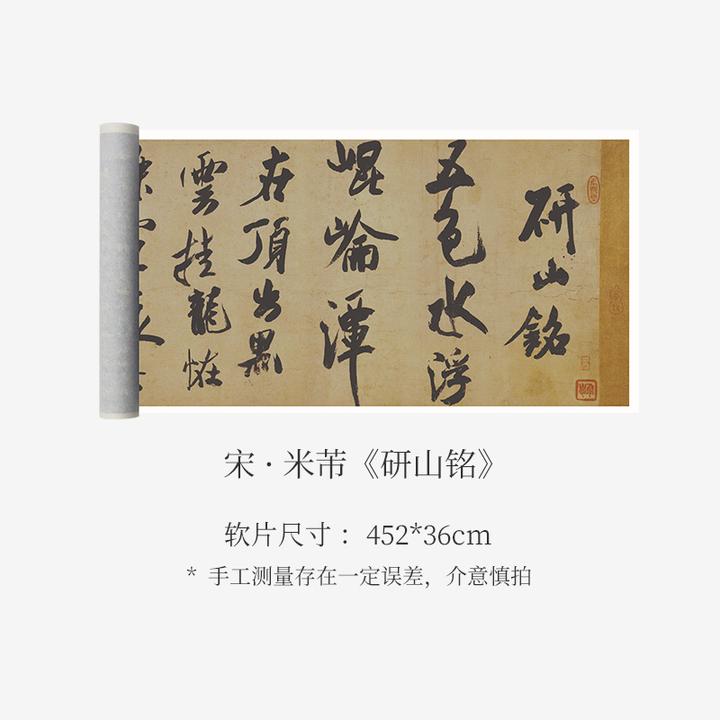 研山銘
五色水浮
崐崘潭
在頂出黑
雲挂龍恠
宋 · 米芾《研山铭》
软片尺寸： 452*36cm
* 手工测量存在一定误差，介意慎拍